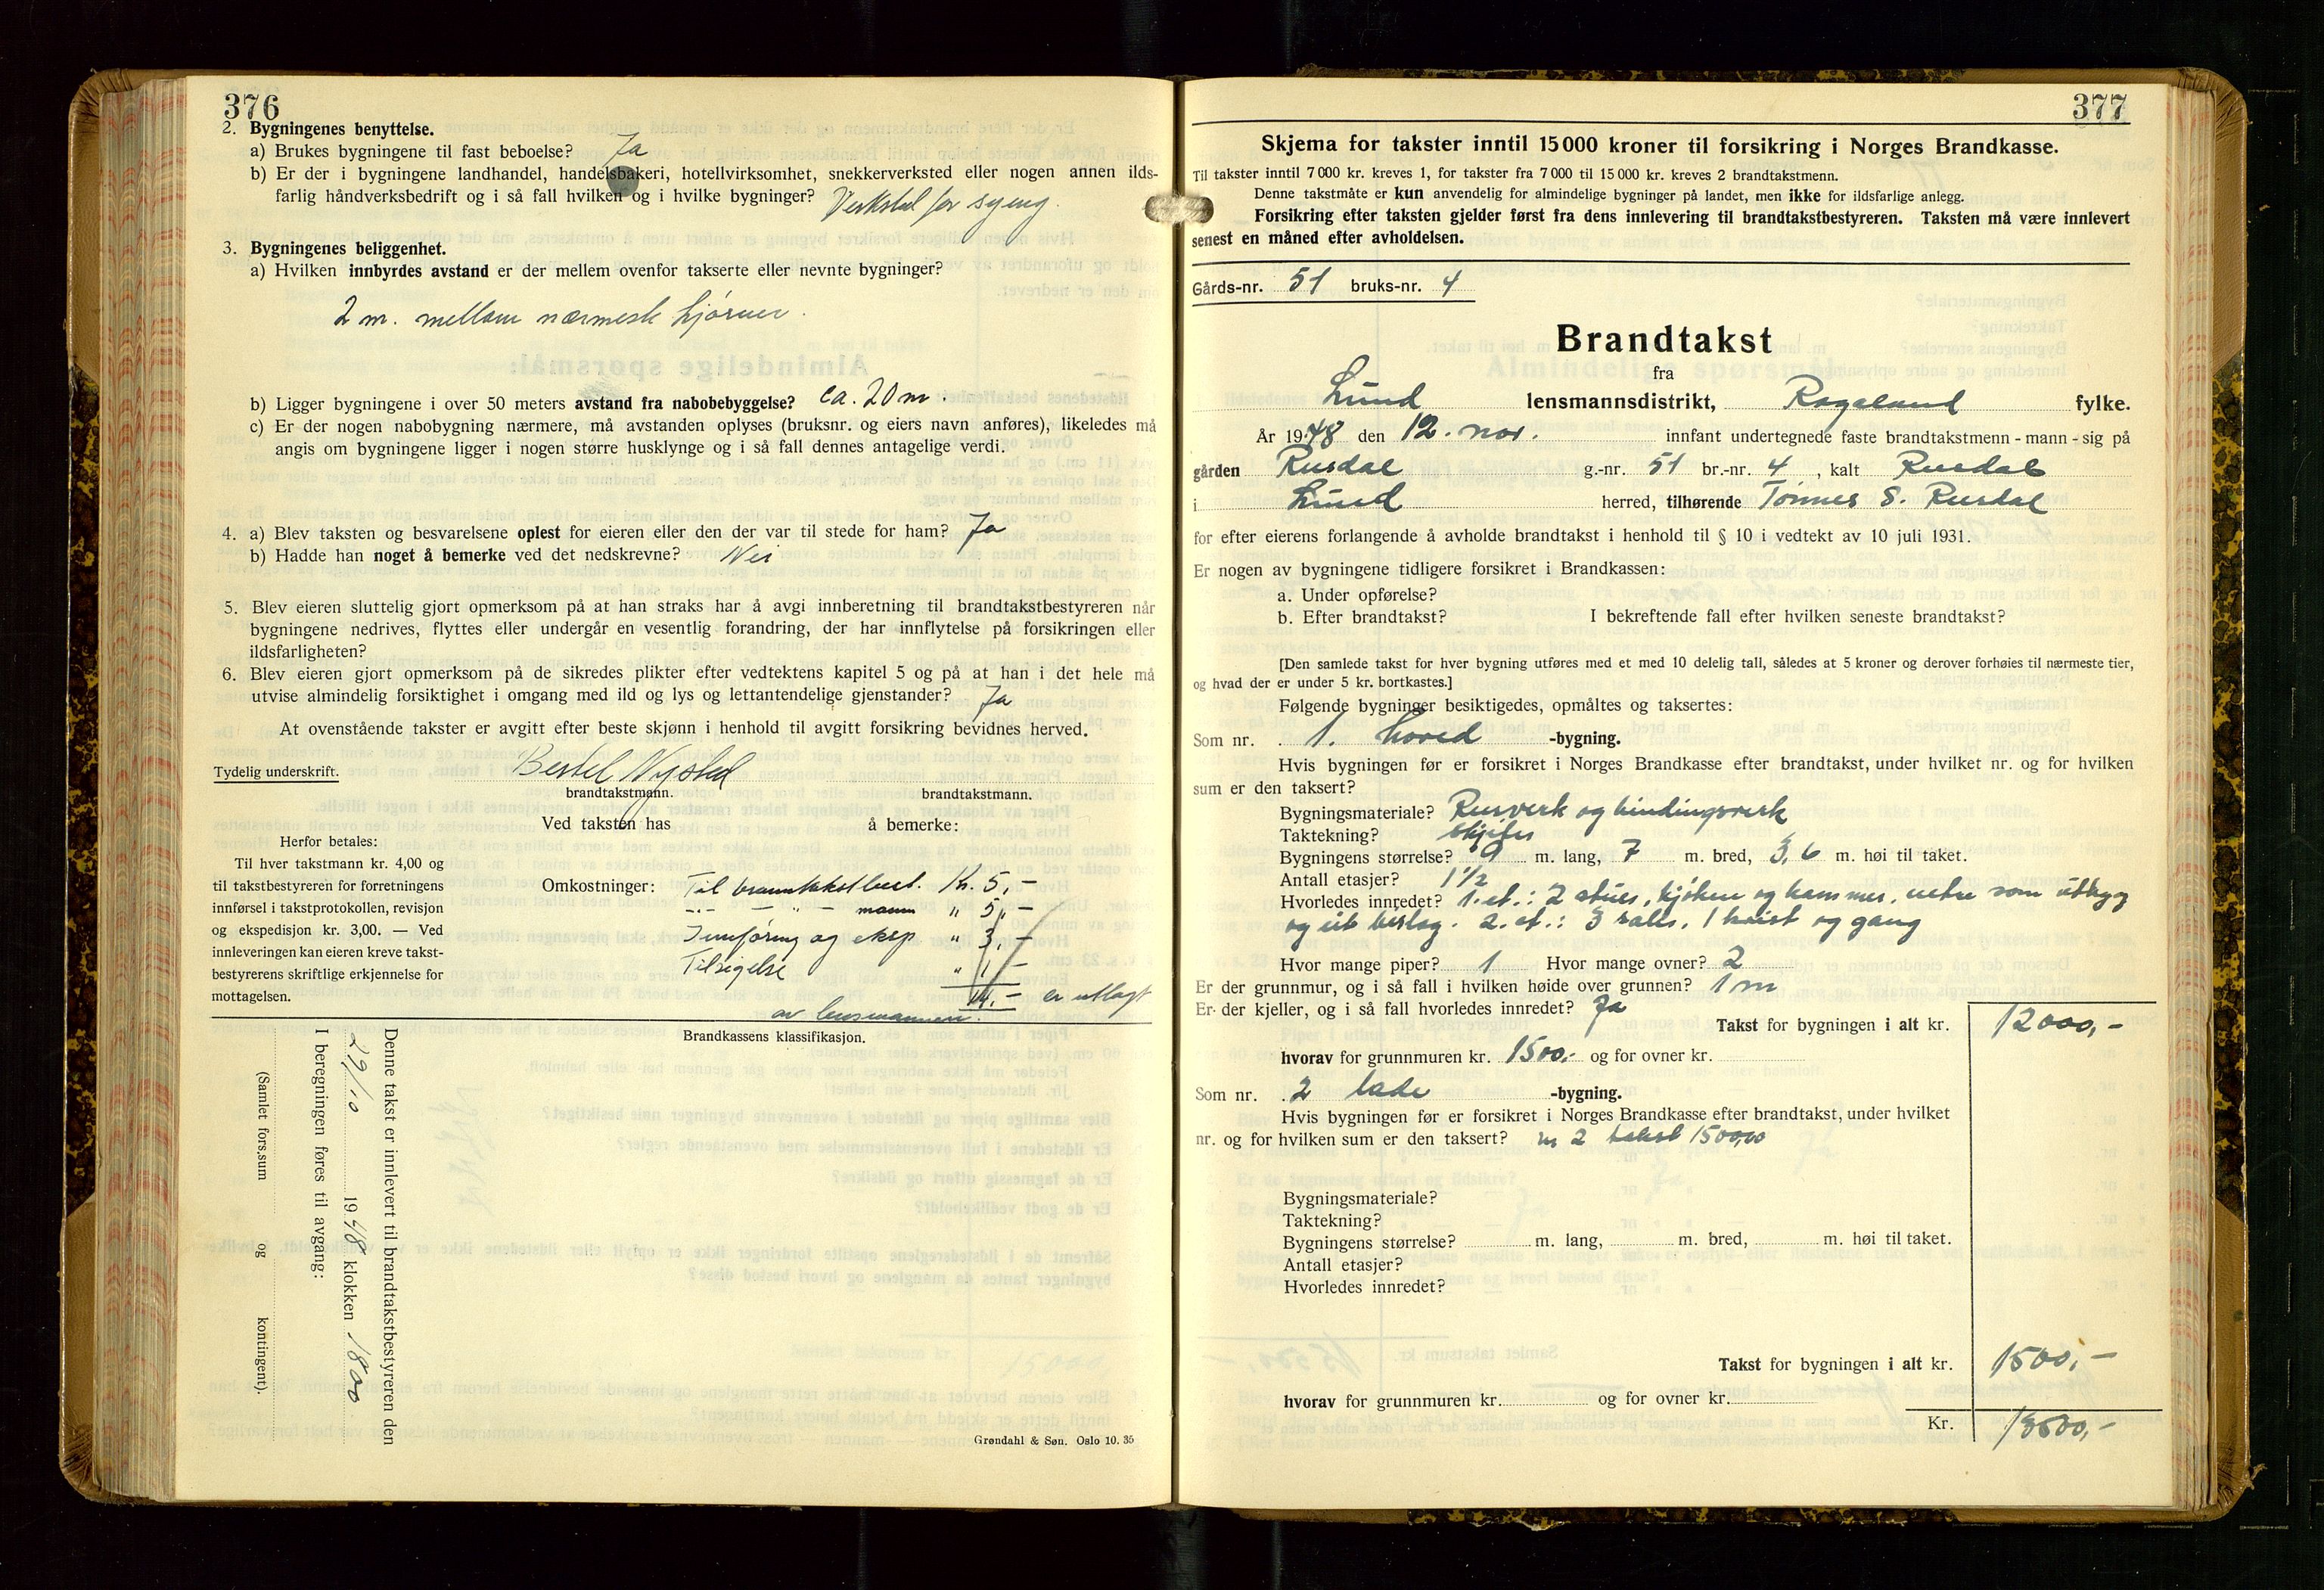 376
2. Bygningenes benyttelse.
a) Brukes bygningene til fast beboelse? Ja
b) Er der i bygningene landhandel, handelsbakeri, hotellvirksomhet, snekkerverksted eller nogen annen ilds-
farlig håndverksbedrift og i så fall hvilken og i hvilke bygninger? Verksted for syeng.
3. Bygningenes beliggenhet.
a) Hvilken innbyrdes avstand er der mellem ovenfor takserte eller nevnte bygninger?
2 m. mellom nærmeste hjørner.
b) Ligger bygningene i over 50 meters avstand fra nabobebyggelse? ca. 20 m.
c) Er der nogen nabobygning nærmere, må avstanden oplyses (bruksnr. og eiers navn anføres), likeledes må
angis om bygningene ligger i nogen større husklynge og i så fall dennes antagelige verdi.
4. a) Blev taksten og besvarelsene oplest for eieren eller den der var til stede for ham? Ja
b) Hadde han noget å bemerke ved det nedskrevne? Nei
5. Blev eieren sluttelig gjort opmerksom på at han straks har å avgi innberetning til brandtakstbestyreren når
bygningene nedrives, flyttes eller undergår en vesentlig forandring, der har innflytelse på forsikringen eller
ildsfarligheten?
6. Blev eieren gjort opmerksom på de sikredes plikter efter vedtektens kapitel 5 og på at han i det hele må
utvise almindelig forsiktighet i omgang med ild og lys og lettantendelige gjenstander? Ja
At ovenstående takster er avgitt efter beste skjønn i henhold til avgitt forsikring bevidnes herved.
Tydelig underskrift. Bertel Nysted
brandtakstmann. brandtakstmann.
Ved taksten has å bemerke:
Herfor betales:
Til hver takstmann kr. 4,00 og
til takstbestyreren for forretningens
innførsel i takstprotokollen, revisjon
og ekspedisjon kr. 3,00. — Ved
innleveringen kan eieren kreve takst-
bestyrerens skriftlige erkjennelse for
mottagelsen.
Omkostninger: Til branntakstbest. Kr. 5,-
-"- - " - mann " 5,-
Innføring og eksp " 3,-
Tilsigelse " 1,-
14,- er utlagt
av lensmannen.
Brandkassens klassifikasjon.
Denne takst er innlevert til brandtakstbestyreren den
29/10 1948 klokken 1800
I beregningen føres til avgang:
(Samlet fors.sum og kontingent).
Grøndahl & Søn. Oslo 10. 35
377
Skjema for takster inntil 15 000 kroner til forsikring i Norges Brandkasse.
Til takster inntil 7 000 kr. kreves 1, for takster fra 7 000 til 15 000 kr. kreves 2 brandtakstmenn.
Denne takstmåte er kun anvendelig for almindelige bygninger på landet, men ikke for ildsfarlige anlegg.
Forsikring efter taksten gjelder først fra dens innlevering til brandtakstbestyreren. Taksten må være innlevert
senest en måned efter avholdelsen.
Gårds-nr. 51 bruks-nr. 4
Brandtakst
fra
Lund lensmannsdistrikt, Rogaland fylke.
År 1948 den 12. nov. innfant undertegnede faste brandtakstmenn - mann - sig på
gården Rusdal g.-nr. 51 br.-nr. 4, kalt Rusdal
i Lund herred, tilhørende Tønnes S. Rusdal
for efter eierens forlangende å avholde brandtakst i henhold til § 10 i vedtekt av 10 juli 1931.
Er nogen av bygningene tidligere forsikret i Brandkassen:
a. Under opførelse?
b. Efter brandtakst? I bekreftende fall efter hvilken seneste brandtakst?
[Den samlede takst for hver bygning utføres med et med 10 delelig tall, således at 5 kroner og derover forhøies til nærmeste tier,
og hvad der er under 5 kr. bortkastes.]
Følgende bygninger besiktigedes, opmåltes og taksertes:
Som nr. 1. hoved -bygning.
Hvis bygningen før er forsikret i Norges Brandkasse efter brandtakst, under hvilket nr. og for hvilken
sum er den taksert?
Bygningsmateriale? Reisverk og bindingsverk
Taktekning? Skifer
Bygningens størrelse? 9 m. lang, 7 m. bred, 3,6 m. høi til taket.
Antall etasjer? 1 1/2
Hvorledes innredet? 1. et.: 2 stuer, kjøken og kammer, entre som utbygg
og ute 2. et.: 3 1 kvist og gang
Hvor mange piper? 1 Hvor mange ovner? 2
Er der grunnmur, og i så fall i hvilken høide over grunnen? 1 m
Er der kjeller, og i så fall hvorledes innredet? Ja
Takst for bygningen i alt kr. 12000,-
hvorav for grunnmuren kr. 1500,- og for ovner kr.
Som nr. 2 løde -bygning.
Hvis bygningen før er forsikret i Norges Brandkasse efter brandtakst, under hvilket
nr. og for hvilken sum er den taksert? nr 2 takst 1500,00
Bygningsmateriale?
Taktekning?
Bygningens størrelse? m. lang, m. bred, m. høi til taket.
Antall etasjer?
Hvorledes innredet?
Takst for bygningen i alt kr. 1500,-
hvorav for grunnmuren kr. og for ovner kr.
Kr. 13500,-